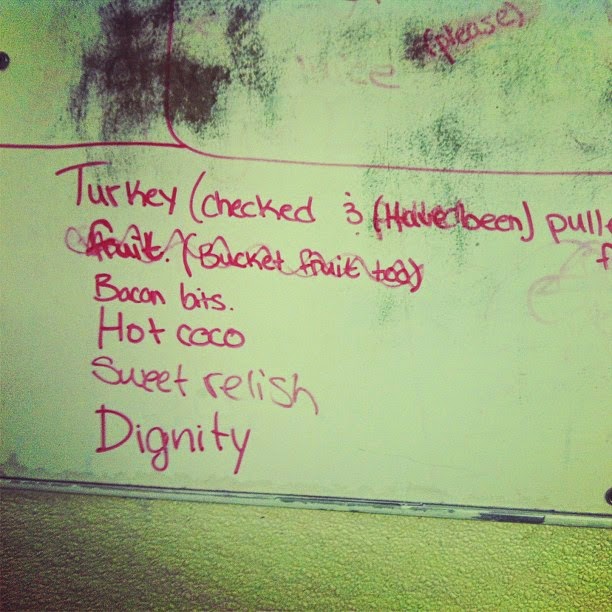 (please)
Turkey (checked & (Have been) pulle
fruit. (Bucket fruit too)
Bacon bits.
Hot coco
Sweet relish
Dignity